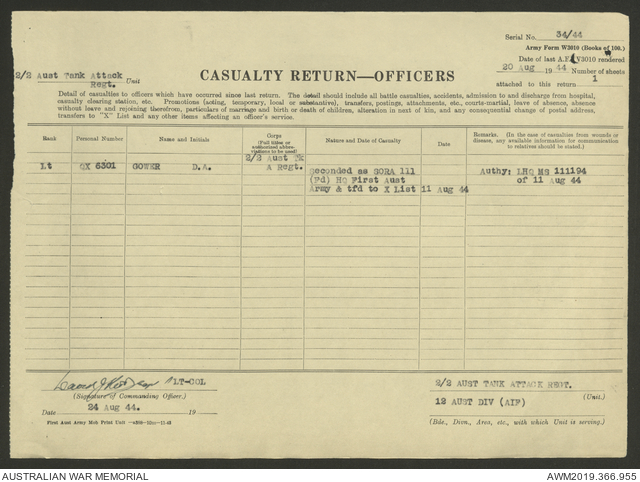 Serial No. 34/44
Army Form W3010 (Books of 100.)
2/2 Aust Tank Attack
Regt. Unit
CASUALTY RETURN—OFFICERS
Date of last A.F. W3010 rendered
20 Aug 1944 Number of sheets
attached to this return 1
Detail of casualties to officers which have occurred since last return. The detail should include all battle casualties, accidents, admission to and discharge from hospital,
casualty clearing station, etc. Promotions (acting, temporary, local or substantive), transfers, postings, attachments, etc., courts-martial, leave of absence, absence
without leave and rejoining therefrom, particulars of marriage and birth or death of children, alteration in next of kin, and any consequential change of postal address,
transfers to "X" List and any other items affecting an officer's service.
Rank
Personal Number
Name and Initials
Corps
(Full titles or
authorized abbre-
viations to be used)
Nature and Date of Casualty
Date
Remarks. (In the case of casualties from wounds or
disease, any available information for communication
to relatives should be stated.)
Lt QX 6301 GOWER D.A.
2/2 Aust Tk
A Regt.
Seconded as SORA 111
(Fd) HQ First Aust
Army & tfd to X List 11 Aug 44
Authy: LHQ MS 111194
of 11 Aug 44
LT-COL
(Signature of Commanding Officer.)
Date 24 Aug 44. 19
First Aust Army Mob Print Unit
2/2 AUST TANK ATTACK REGT.
(Unit.)
12 AUST DIV (AIF)
(Bde., Divn., Area, etc., with which Unit is serving.)
AUSTRALIAN WAR MEMORIAL
AWM2019.366.955